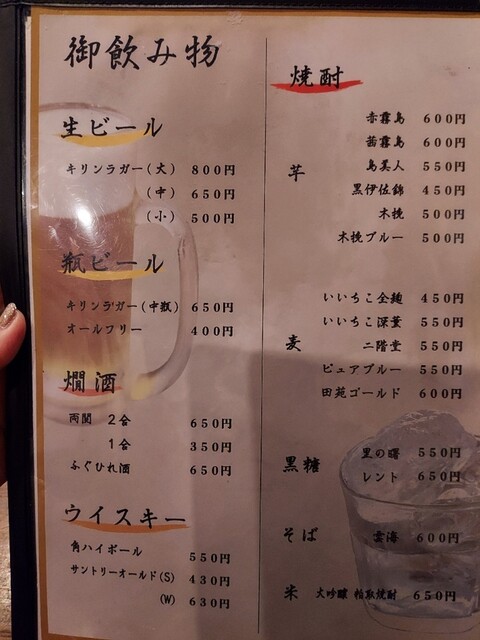 御飲み物
生ビール
キリンラガー(大) 800円
(中) 650円
(小) 500円
瓶ビール
キリンラガー(中瓶) 650円
オールフリー 400円
燗酒
両関 2合 650円
1合 350円
ふぐひれ酒 650円
ウイスキー
角ハイボール 550円
サントリーオールド(S) 430円
(W) 630円
焼酎
芋
赤霧島 600円
茜霧島 600円
島美人 550円
黒伊佐錦 450円
木挽 500円
木挽ブルー 500円
麦
いいちこ全麹 450円
いいちこ深葉 550円
二階堂 550円
ピュアブルー 550円
田苑ゴールド 600円
黒糖
里の曙 550円
レント 650円
そば 雲海 600円
米 大吟醸 粕取焼酎 650円